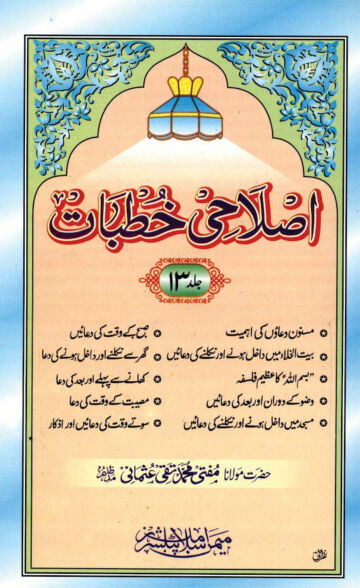 اصلاحی خطبات
جلد ۱۳
مسنون دعاؤں کی اہمیت
بیت الخلاء میں داخل ہونے اور نکلنے کی دعائیں
"بسم اللہ" کا عظیم فلسفہ
وضو کے دوران اور بعد کی دعائیں
مسجد میں داخل ہونے اور نکلنے کی دعائیں
صبح کے وقت کی دعائیں
گھر سے نکلنے اور داخل ہونے کی دعا
کھانے سے پہلے اور بعد کی دعا
مصیبت کے وقت کی دعا
سوتے وقت کی دعائیں اور اذکار
حضرت مولانا مفتی محمد تقی عثمانی مدظلہم
میمن اسلامک پبلشرز